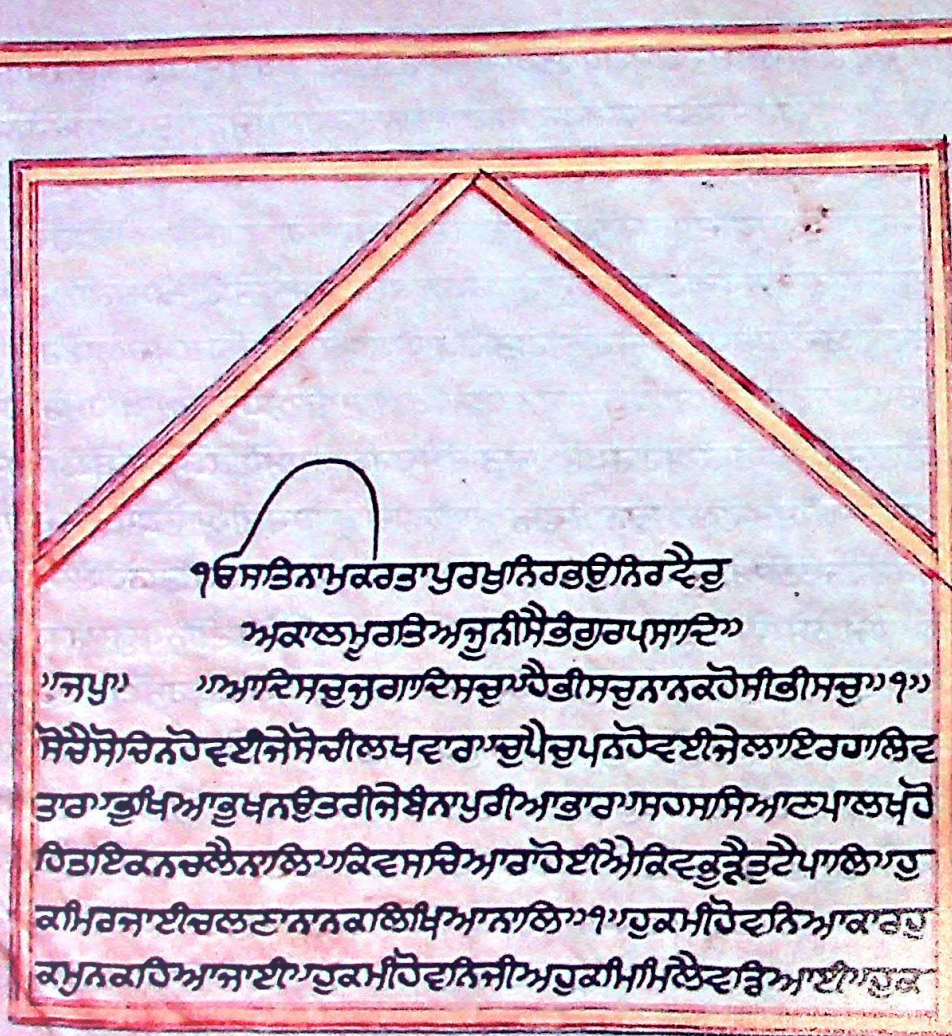 ੴਸਤਿਨਾਮੁਕਰਤਾਪੁਰਖੁਨਿਰਭਉਨਿਰਵੈਰੁ
ਅਕਾਲਮੂਰਤਿਅਜੂਨੀਸੈਭੰਗੁਰਪ੍ਰਸਾਦਿ॥
॥ਜਪੁ॥ ॥ਆਦਿਸਚੁਜੁਗਾਦਿਸਚੁ॥ਹੈਭੀਸਚੁਨਾਨਕਹੋਸੀਭੀਸਚੁ॥੧॥
ਸੋਚੈਸੋਚਿਨਹੋਵਈਜੇਸੋਚੀਲਖਵਾਰ॥ਚੁਪੈਚੁਪਨਹੋਵਈਜੇਲਾਇਰਹਾਲਿਵ
ਤਾਰ॥ਭੁਖਿਆਭੁਖਨਉਤਰੀਜੇਬੰਨਾਪੁਰੀਆਭਾਰ॥ਸਹਸਸਿਆਣਪਾਲਖਹੋ
ਹਿਤਇਕਨਚਲੈਨਾਲਿ॥ਕਿਵਸਚਿਆਰਾਹੋਈਐਕਿਵਕੂੜੈਤੁਟੈਪਾਲਿ॥ਹੁ
ਕਮਿਰਜਾਈਚਲਣਾਨਾਨਕਲਿਖਿਆਨਾਲਿ॥੧॥ਹੁਕਮੀਹੋਵਨਿਆਕਾਰਹੁ
ਕਮੁਨਕਹਿਆਜਾਈ॥ਹੁਕਮੀਹੋਵਨਿਜੀਅਹੁਕਮਿਮਿਲੈਵਡਿਆਈ॥ਹੁਕ